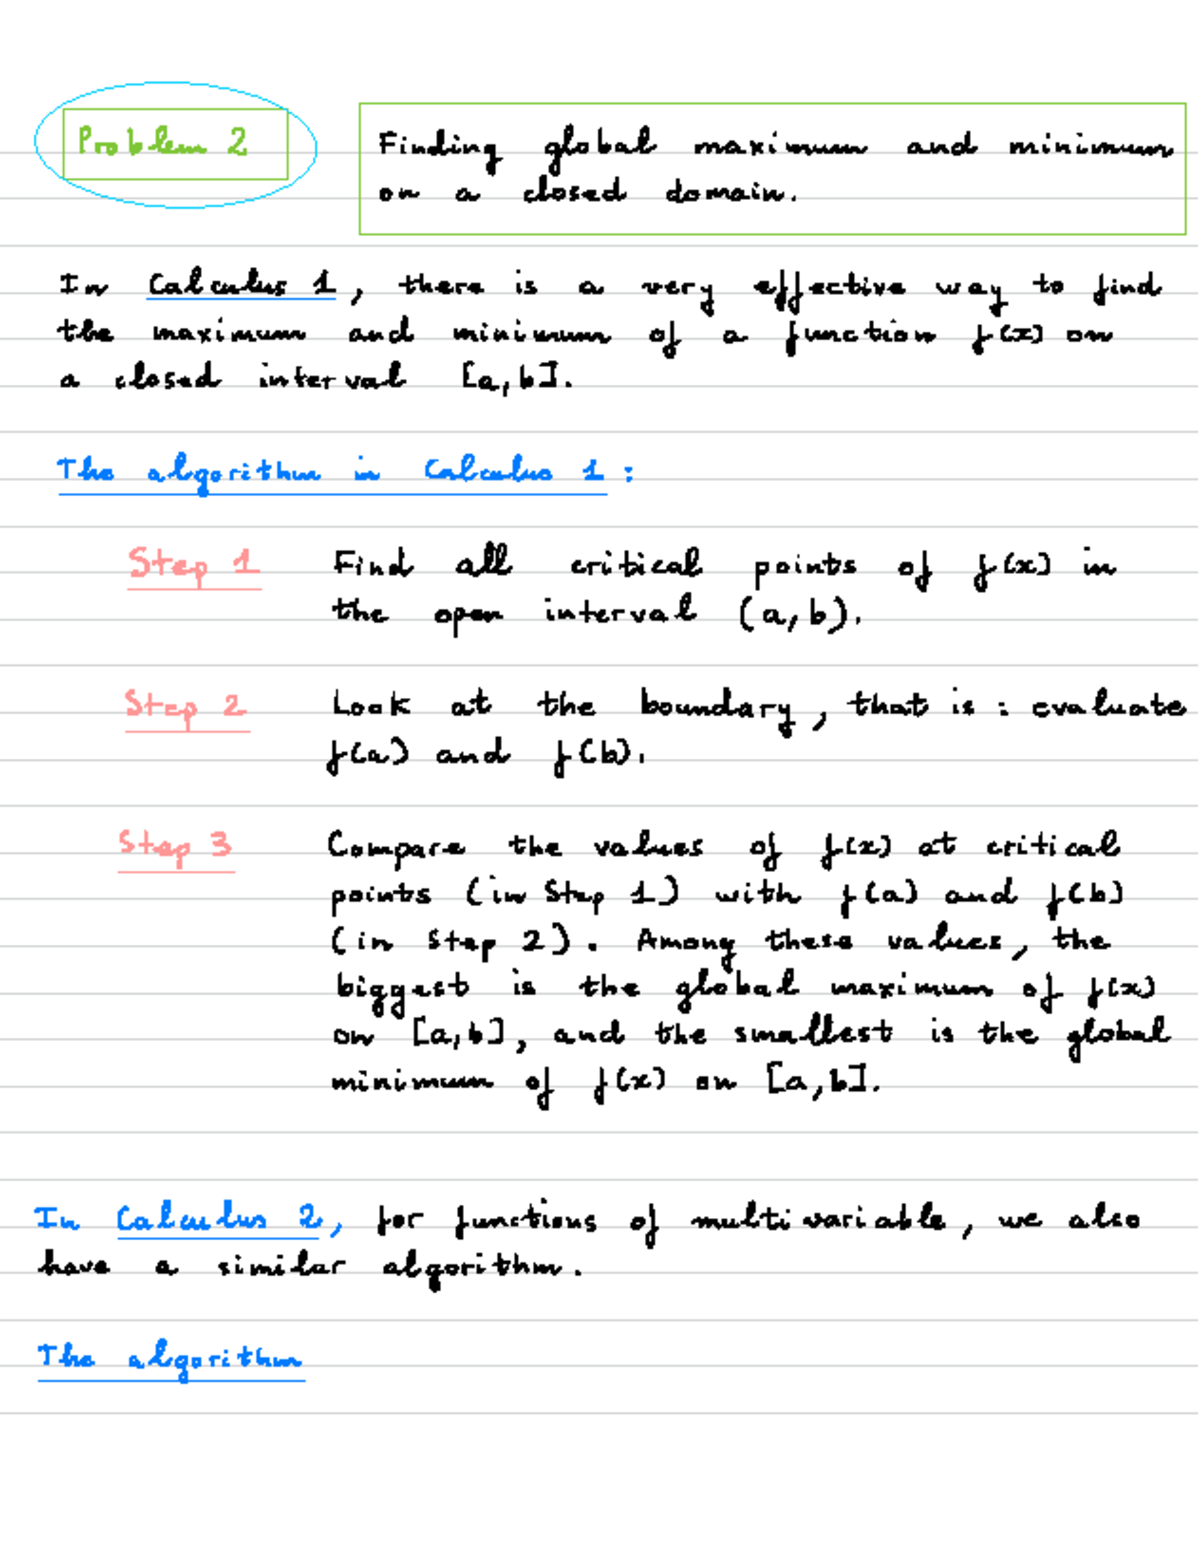 Problem 2
Finding global maximum and minimum
on a closed domain.
In Calculus 1, there is a very effective way to find
the maximum and minimum of a function f(x) on
a closed interval [a,b].
The algorithm in Calculus 1:
Step 1 Find all critical points of f(x) in
the open interval (a,b).
Step 2 Look at the boundary, that is: evaluate
f(a) and f(b).
Step 3 Compare the values of f(x) at critical
points (in Step 1) with f(a) and f(b)
(in Step 2). Among these values, the
biggest is the global maximum of f(x)
on [a,b], and the smallest is the global
minimum of f(x) on [a,b].
In Calculus 2, for functions of multivariable, we also
have a similar algorithm.
The algorithm